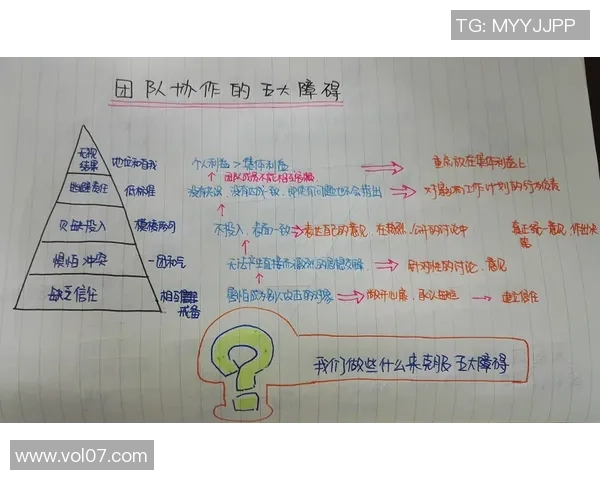 TG: MYYJJPP
团队协作的五大障碍
无视
结果
地位和自我
个人利益 > 集体利益
重点放在集体利益上
团队成员不能相互
逃避责任
低标准
对影响工作计划的行为负责
欠缺投入
模棱两可
不投入，表面一致
表达自己的意见，在激烈、公开的讨论中
真正统一意见，作出决策
惧怕冲突
一团和气
无法产生直接而激烈的思想交锋
针对性的讨论，意见
缺乏信任
相互
戒备
害怕成为别人攻击的对象
敞开心扉，承认
建立信任
?
我们做些什么来克服五大障碍
www.vol07.com